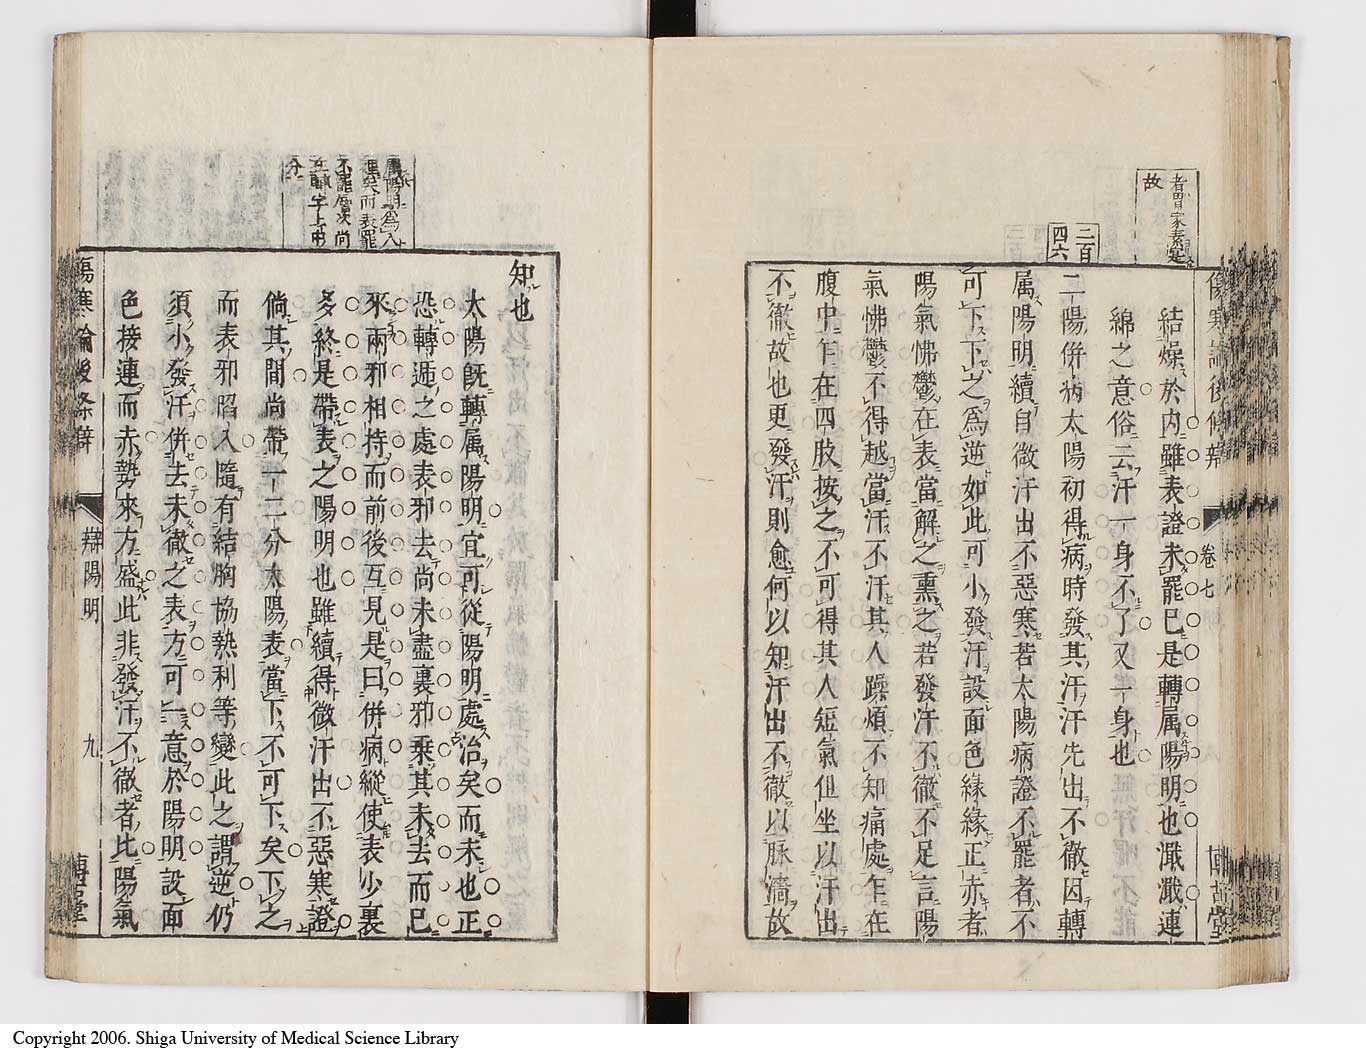 者胃家素是
故
二百
四六
傷寒論後條辨
卷七
博古堂
結燥於内雖表證未罷巳是轉属陽明也濈濈連
綿之意俗云汗一身不了又一身也
二陽併病太陽初得病時發其汗汗先出不徹因轉
属陽明續自微汗出不惡寒若太陽病證不罷者不
可下下之爲逆如此可小發汗設面色緣緣正赤者
陽氣怫鬱在表當解之熏之若發汗不徹不足言陽
氣怫鬱不得越當汗不汗其人躁煩不知痛處乍在
腹中乍在四肢按之不可得其人短氣但坐以汗出
不徹故也更發汗則愈何以知汗出不徹以脉濇故
知也
属陽明爲入
裡矣而表罷
不罷層次尚
在轉字上申
分
太陽既轉属陽明宜可從陽明處治矣而未也正
恐轉遞之處表邪去尚未盡裏邪乘其未去而巳
來兩邪相持而前後互見是曰併病縱使表少裏
多終是帶表之陽明也雖續得微汗出不惡寒證
倘其間尚帶一二分太陽表當下不可下矣下之
而表邪陷入隨有結胸協熱利等變此之謂逆仍
須小發汗併去未徹之表方可一意於陽明設面
色接連而赤勢來方盛此非發汗不徹者比陽氣
傷寒論後條辨
辯陽明
九
博古堂
Copyright 2006. Shiga University of Medical Science Library